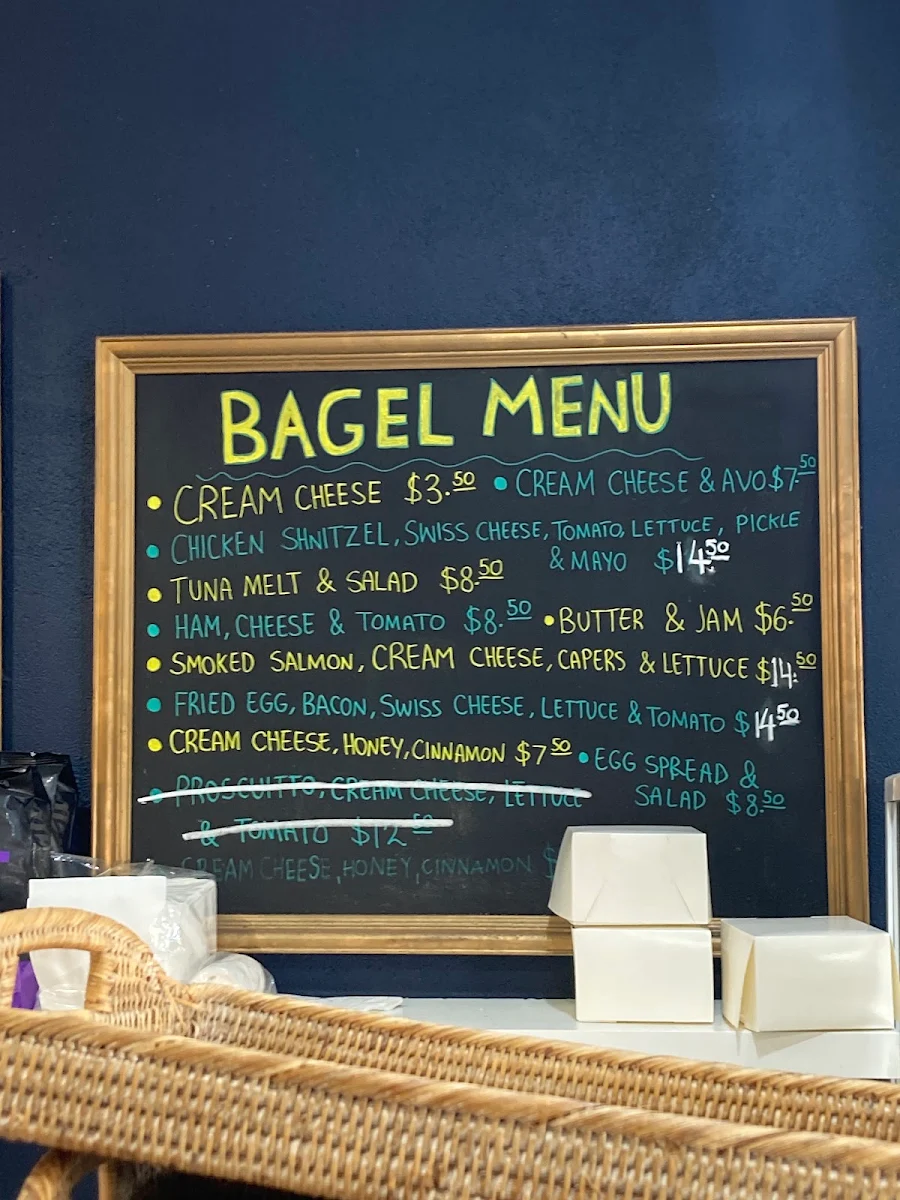 BAGEL MENU
• CREAM CHEESE $3.50 • CREAM CHEESE & AVO $7.50
• CHICKEN SHNITZEL, SWISS CHEESE, TOMATO, LETTUCE, PICKLE
& MAYO $14.50
• TUNA MELT & SALAD $8.50
• HAM, CHEESE & TOMATO $8.50 • BUTTER & JAM $6.50
• SMOKED SALMON, CREAM CHEESE, CAPERS & LETTUCE $14.50
• FRIED EGG, BACON, SWISS CHEESE, LETTUCE & TOMATO $14.50
• CREAM CHEESE, HONEY, CINNAMON $7.50 • EGG SPREAD &
SALAD $8.50
• PROSCUITTO, CREAM CHEESE, LETTUCE
& TOMATO $12.50
CREAM CHEESE, HONEY, CINNAMON $